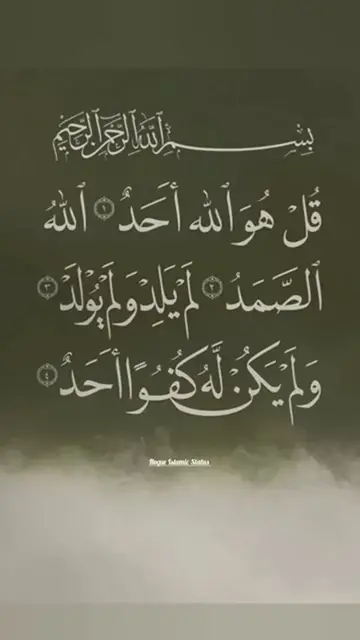 بِسْمِ ٱللَّهِ ٱلرَّحْمَٰنِ ٱلرَّحِيمِ
قُلْ هُوَ ٱللَّهُ أَحَدٌ ١ ٱللَّهُ
ٱلصَّمَدُ ٢ لَمْ يَلِدْ وَلَمْ يُولَدْ ٣
وَلَمْ يَكُن لَّهُ كُفُوًا أَحَدٌ ٤
Noqur Islamic Status